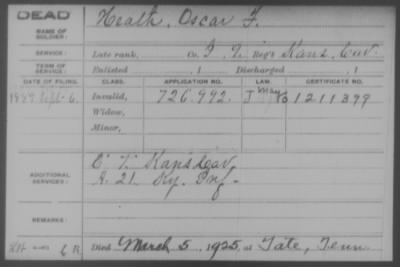 DEAD
NAME OF SOLDIER: Heath, Oscar F.
SERVICE: Late rank, Co. Reg't Kans. Cav.
TERM OF SERVICE: Enlisted , 1 Discharged , 1
DATE OF FILING. CLASS. APPLICATION NO. LAW. CERTIFICATE NO.
1889 Sept. 6. Invalid, 726.992. J 1211399
Widow,
Minor,
ADDITIONAL SERVICES: Kans Cav
21 Ky. Inf.
REMARKS:
Died March 5, 1925, at Tate, Tenn